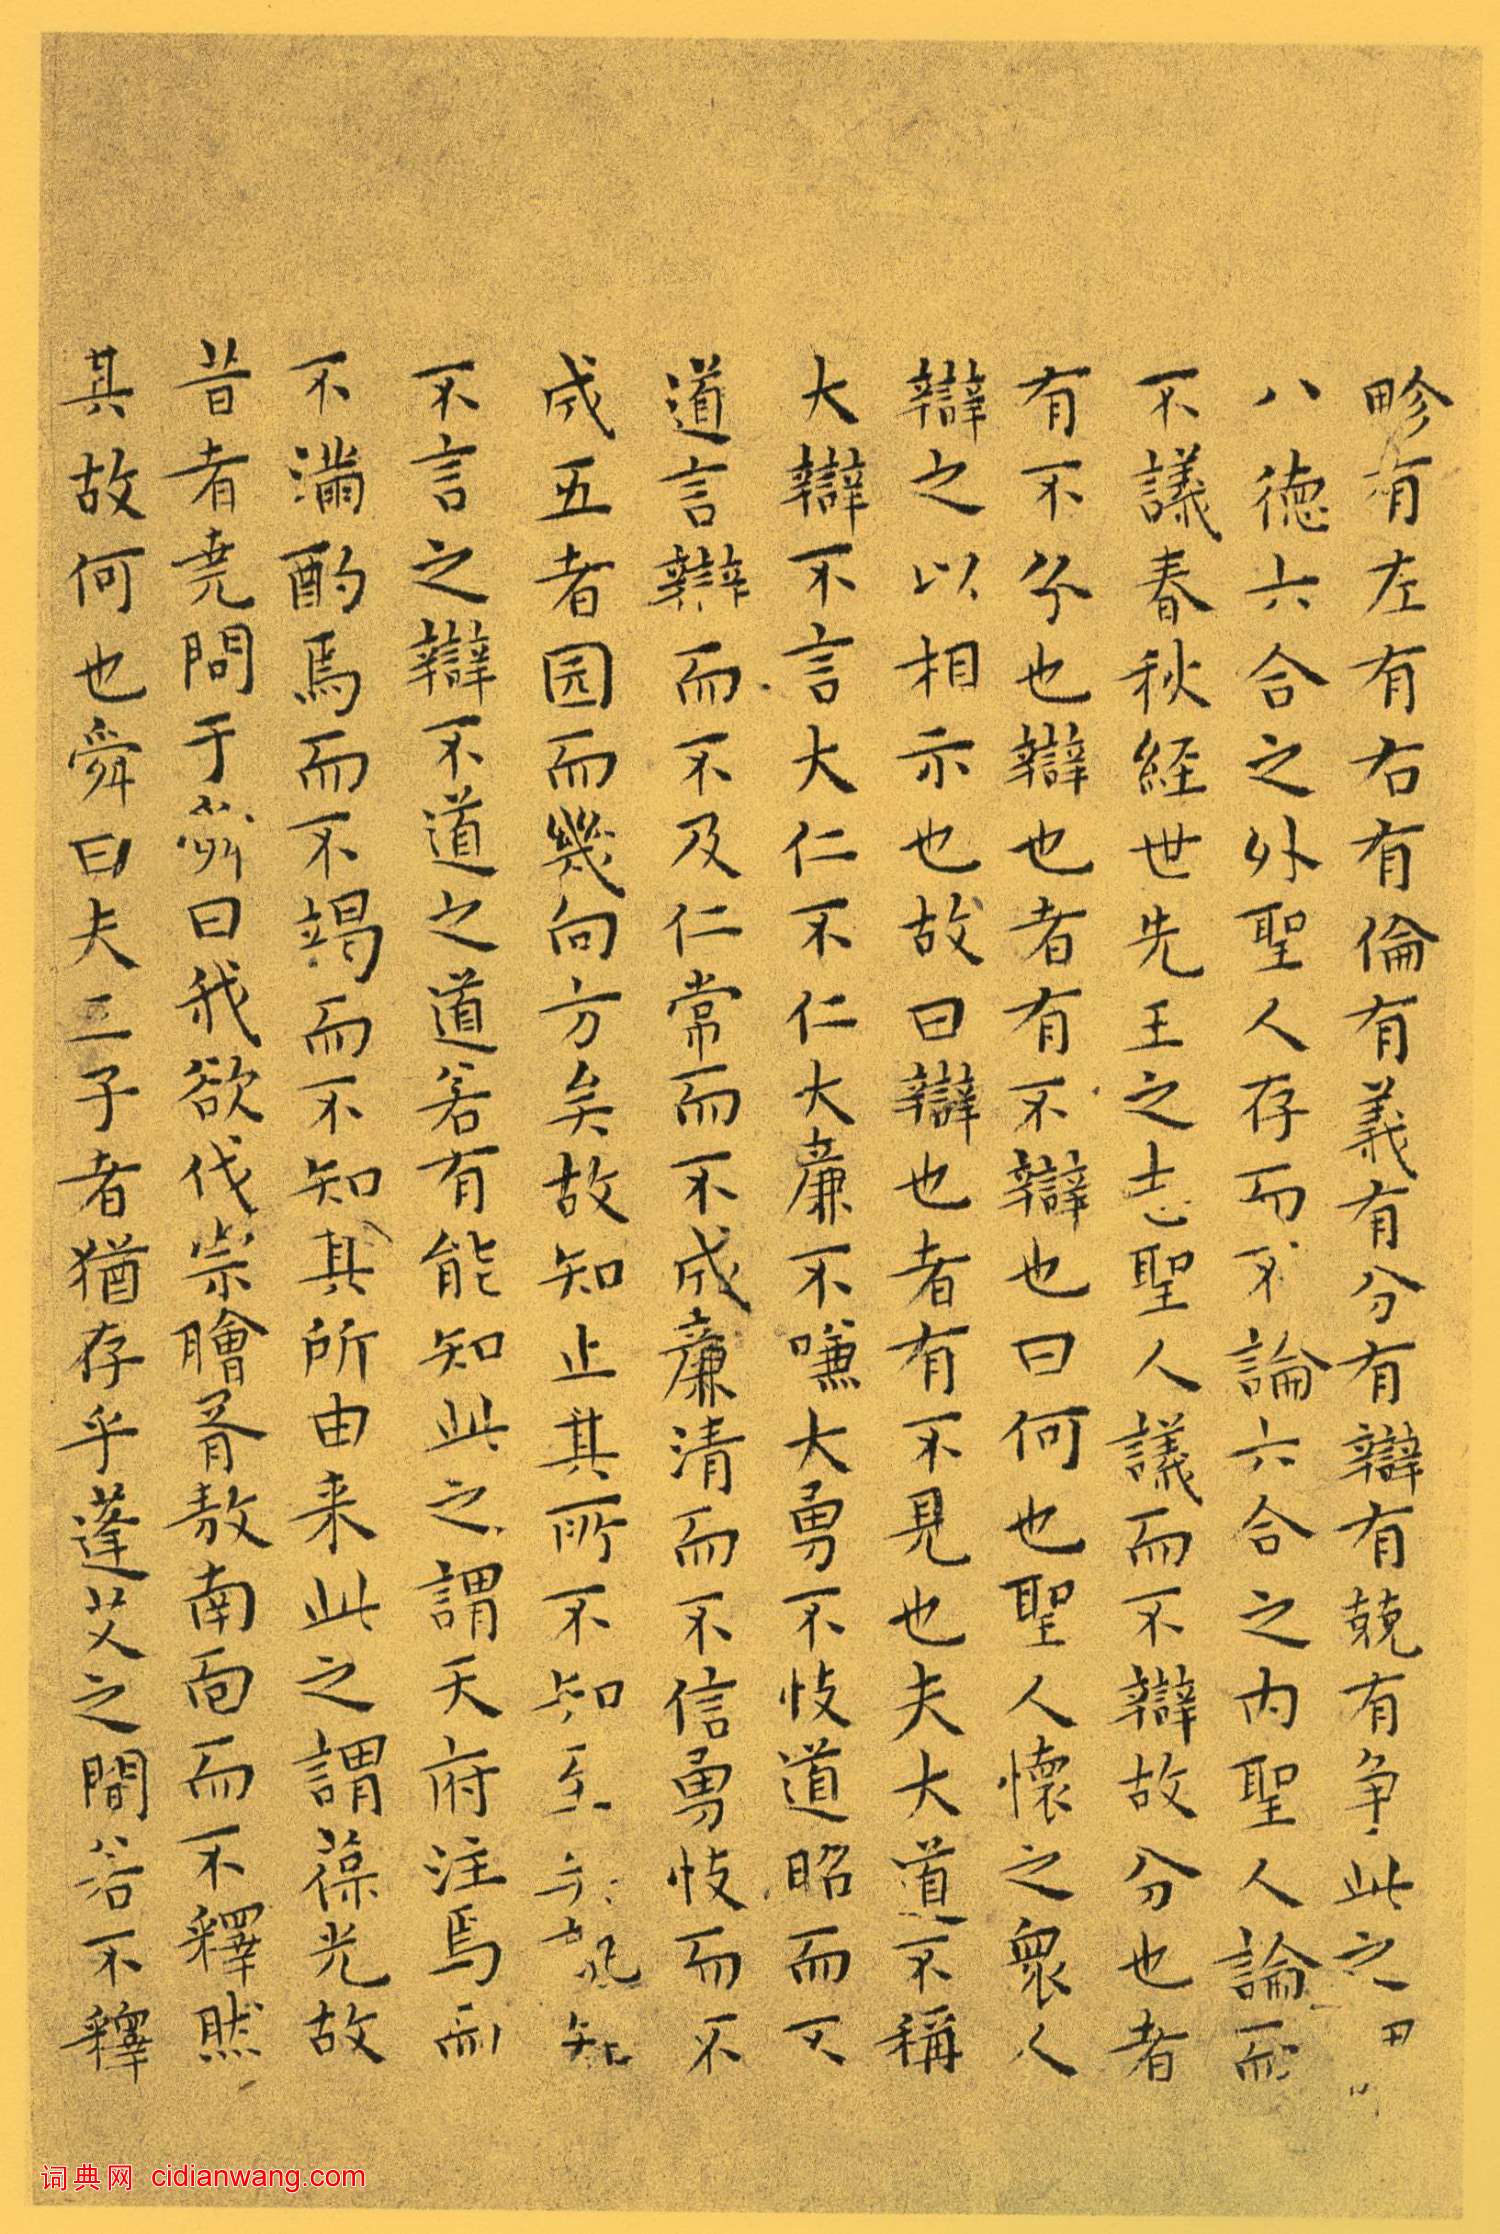 畛有左有右有倫有義有分有辯有競有争此之
八德六合之外聖人存而不論六合之内聖人論而
不議春秋經世先王之志聖人議而不辯故分也者
有不分也辯也者有不辯也曰何也聖人懷之衆人
辯之以相示也故曰辯也者有不見也夫大道不稱
大辯不言大仁不仁大廉不嗛大勇不忮道昭而不
道言辯而不及仁常而不成廉清而不信勇忮而不
成五者园而幾向方矣故知止其所不知至矣孰知
不言之辯不道之道若有能知此之謂天府注焉而
不満酌焉而不竭而不知其所由来此之謂葆光故
昔者尭問于舜曰我欲伐崇膾胥敖南面而不釋然
其故何也舜曰夫三子者猶存乎蓬艾之間若不釋
词典网 cidianwang.com